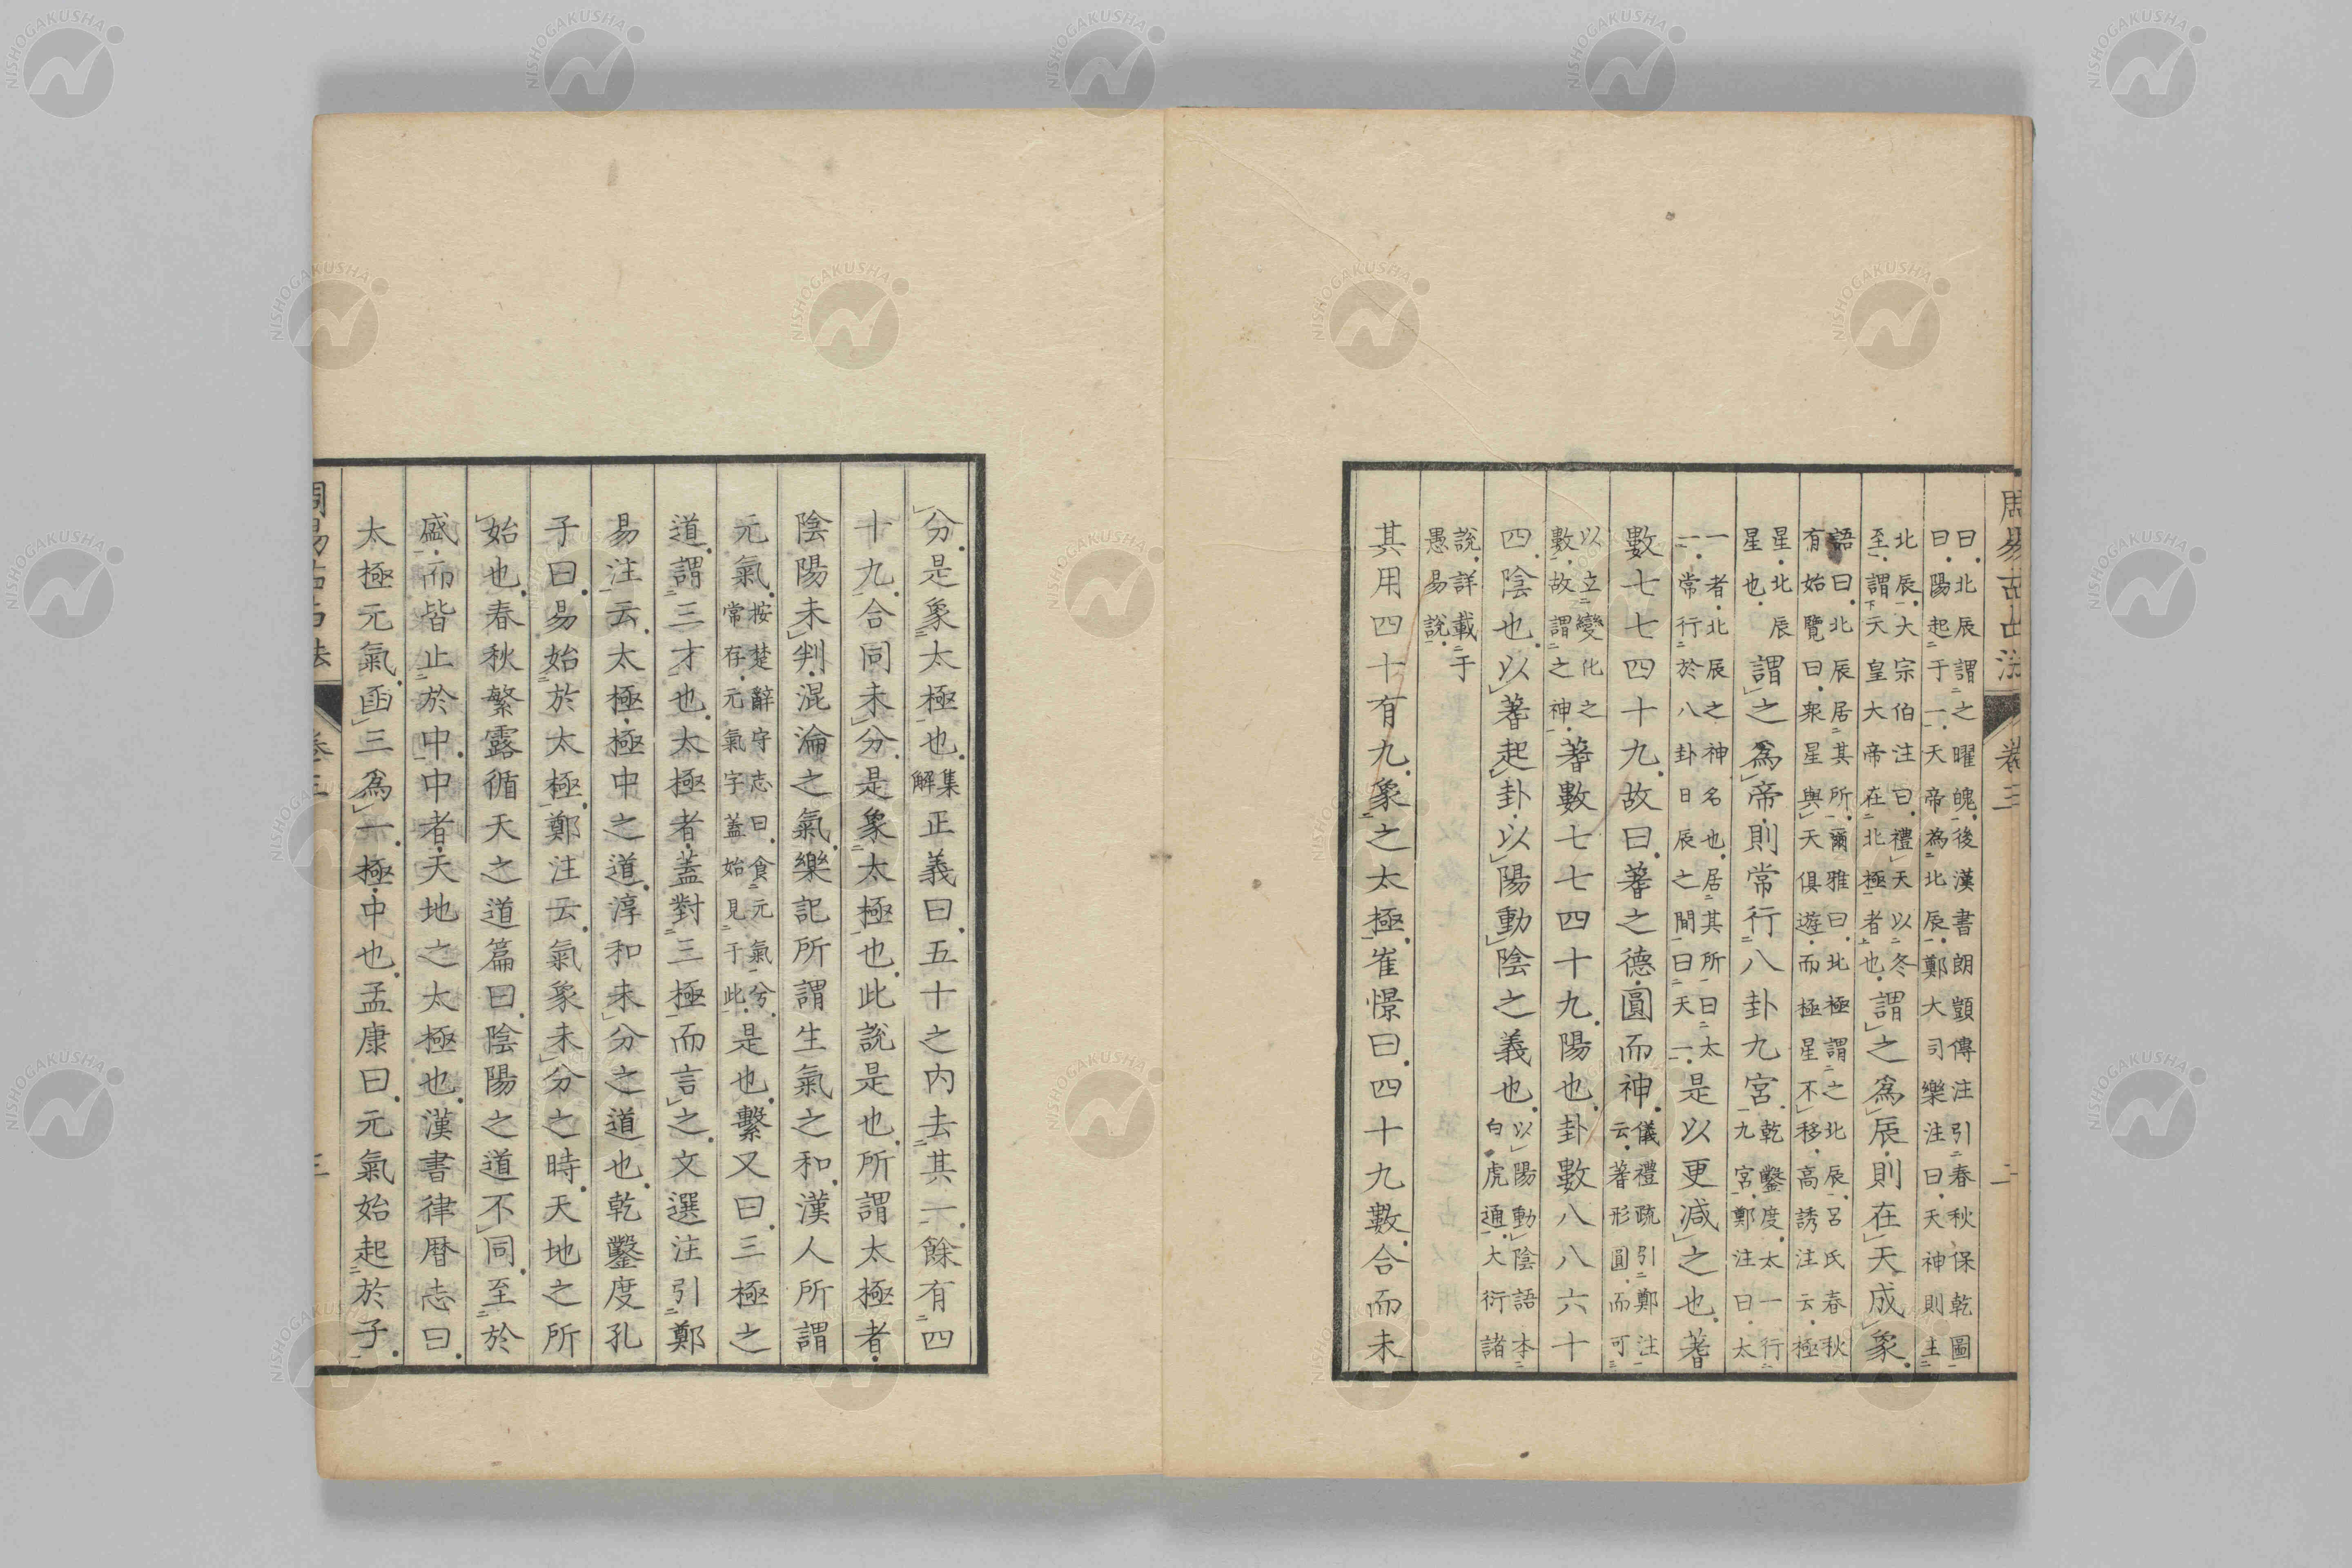 周易古占法 卷三 二
曰北辰謂之曜魄後漢書朗顗傳注引春秋保乾圖
曰陽起于一天帝為北辰鄭大司樂注曰天神則主
北辰大宗伯注曰禮天以冬
至謂天皇大帝在北極者也謂之爲辰則在天成象
語曰北辰居其所爾雅曰北極謂之北辰呂氏春秋
有始覽曰衆星與天俱遊而極星不移高誘注云極
星北辰
星也謂之爲帝則常行八卦九宮乾鑿度太一行
九宮鄭注曰太
一者北辰之神名也居其所曰太
一常行於八卦日辰之間曰天一是以更減之也蓍
數七七四十九故曰蓍之德圓而神儀禮疏引鄭注
云蓍形圓而可
以立變化之
數故謂之神蓍數七七四十九陽也卦數八八六十
四陰也以蓍起卦以陽動陰之義也以陽動陰語本
白虎通大衍諸
說詳載于
愚易說
其用四十有九象之太極崔憬曰四十九數合而未
分是象太極也集
解正義曰五十之内去其一餘有四
十九合同未分是象太極也此說是也所謂太極者
陰陽未判混淪之氣樂記所謂生氣之和漢人所謂
元氣按楚辭守志曰食元氣兮
常存元氣字蓋始見于此是也繫又曰三極之
道謂三才也太極者蓋對三極而言之文選注引鄭
易注云太極極中之道淳和未分之道也乾鑿度孔
子曰易始於太極鄭注云氣象未分之時天地之所
始也春秋繁露循天之道篇曰陰陽之道不同至於
盛而皆止於中中者天地之太極也漢書律暦志曰
太極元氣函三爲一極中也孟康曰元氣始起於子
周易古占法 卷三 三